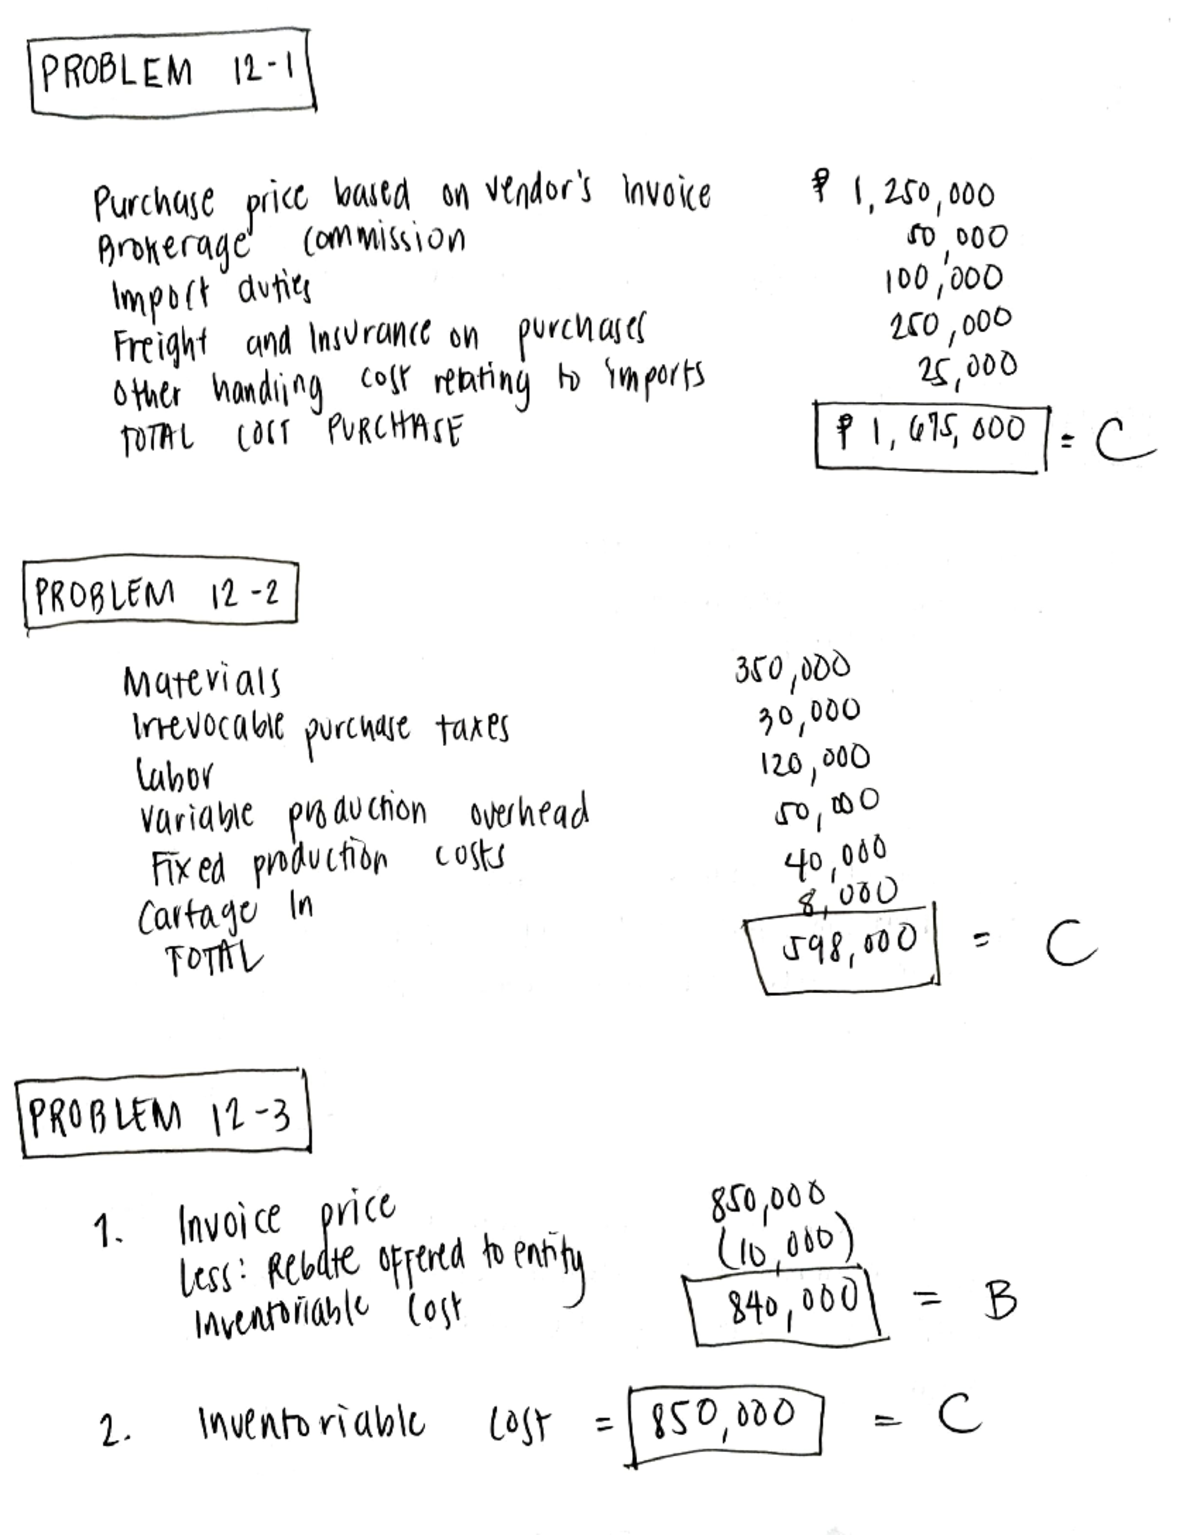 PROBLEM 12-1
Purchase price based on vendor's invoice ₱ 1,250,000
Brokerage commission 50,000
Import duties 100,000
Freight and Insurance on purchases 250,000
Other handling cost relating to imports 25,000
TOTAL COST PURCHASE ₱ 1,675,000 = C
PROBLEM 12-2
Materials 350,000
Irrevocable purchase taxes 30,000
Labor 120,000
Variable production overhead 50,000
Fixed production costs 40,000
Cartage In 8,000
TOTAL 598,000 = C
PROBLEM 12-3
1. Invoice price 850,000
Less: Rebate offered to entity (10,000)
Inventoriable Cost 840,000 = B
2. Inventoriable cost = 850,000 = C